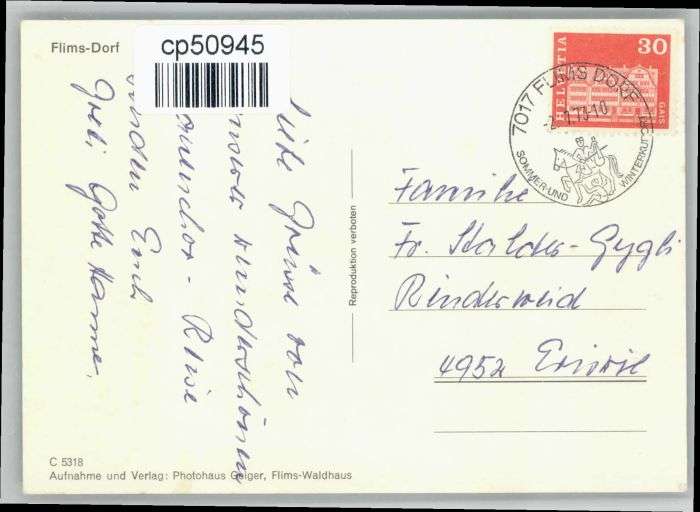 Flims-Dorf
cp50945
HELVETIA
30
GAIS
7017 FLIMS DORF
SOMMER- UND WINTERKURORT
Grüsse von
wunderschönen
Reise
senden Euch
Gotte Hanne.
Reproduktion verboten
Familie
Fr. Stalder-Gygli
Rinderweid
4952 Eriswil
C 5318
Aufnahme und Verlag: Photohaus Geiger, Flims-Waldhaus